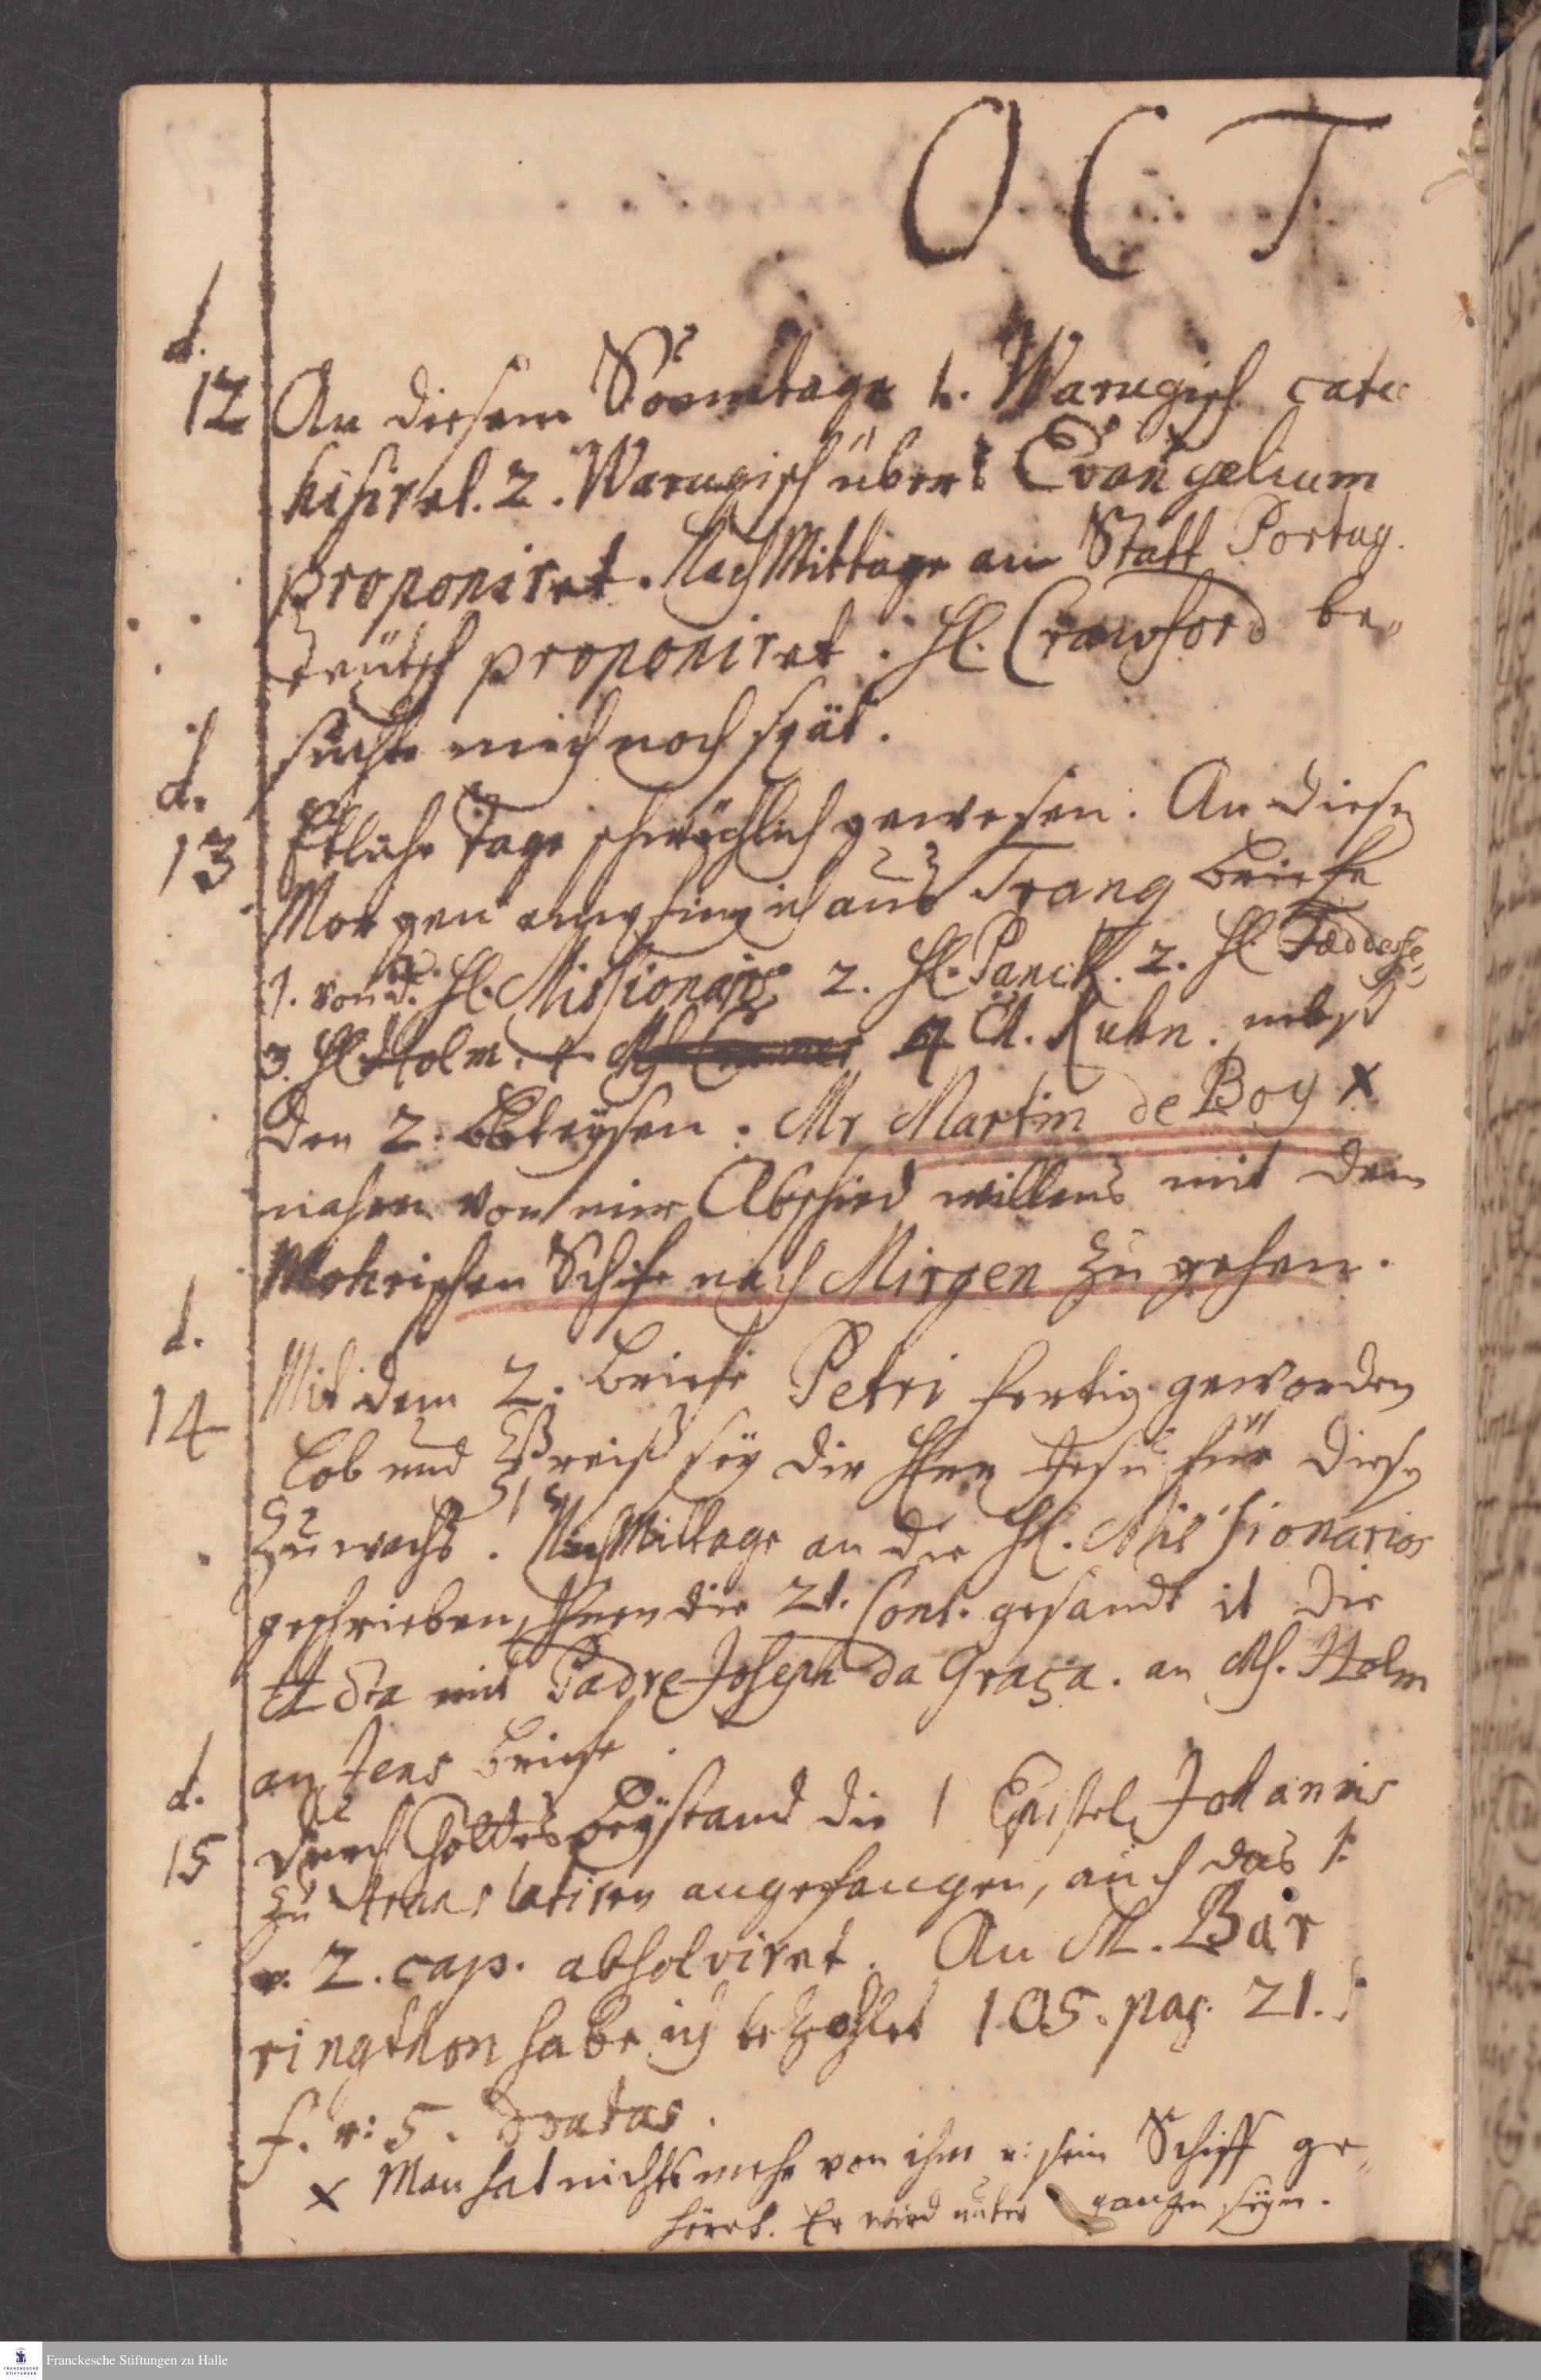 OCT
d.
12 An diesem Sonntage 1. Warugisch cate
chisiret. 2. Warugisch übers Evangelium
proponiret. NachMittage an Statt Portug.
teütsch proponiret. H. Crawford be„
suchte mich noch spät.
d.
13 Etliche Tage schwächlich gewesen. An diesen
Morgen empfing ich aus Trang Briefe
1. von d. H. Missionariis 2. H. Panck. 2. H.
3. H. Holm. 4 Ch. Kuhn. nebst
den 2. Mr Martin de Boy x
nahm von mir Abschied willens mit dem
Mohrischen Schife nach Mirgen zu gehen.
d.
14 Mit dem 2. Briefe Petri fertig geworden
Lob und Preiß sey dir Herr Jesu für diesen
Zuwachs! NachMittage an die H. Missionarios
geschrieben, Ihnen die 21. Cont. gesandt it die
Acta mit Padre Joseph da Graça. an M. Holm
an Jens Briefe.
d.
15 Durch Gottes Beystand die 1 Epistel Johannis
zu translatiren angefangen, auch das 1.
u. 2. cap. absolviret. An M. Bar
ringthon habe ich bezahlet 105. pag. 21.
f. u: 5.
x Man hat nichts mehr von ihm u: sein Schiff ge„
höret. Er wird unter gangen seyn.
Franckesche Stiftungen zu Halle